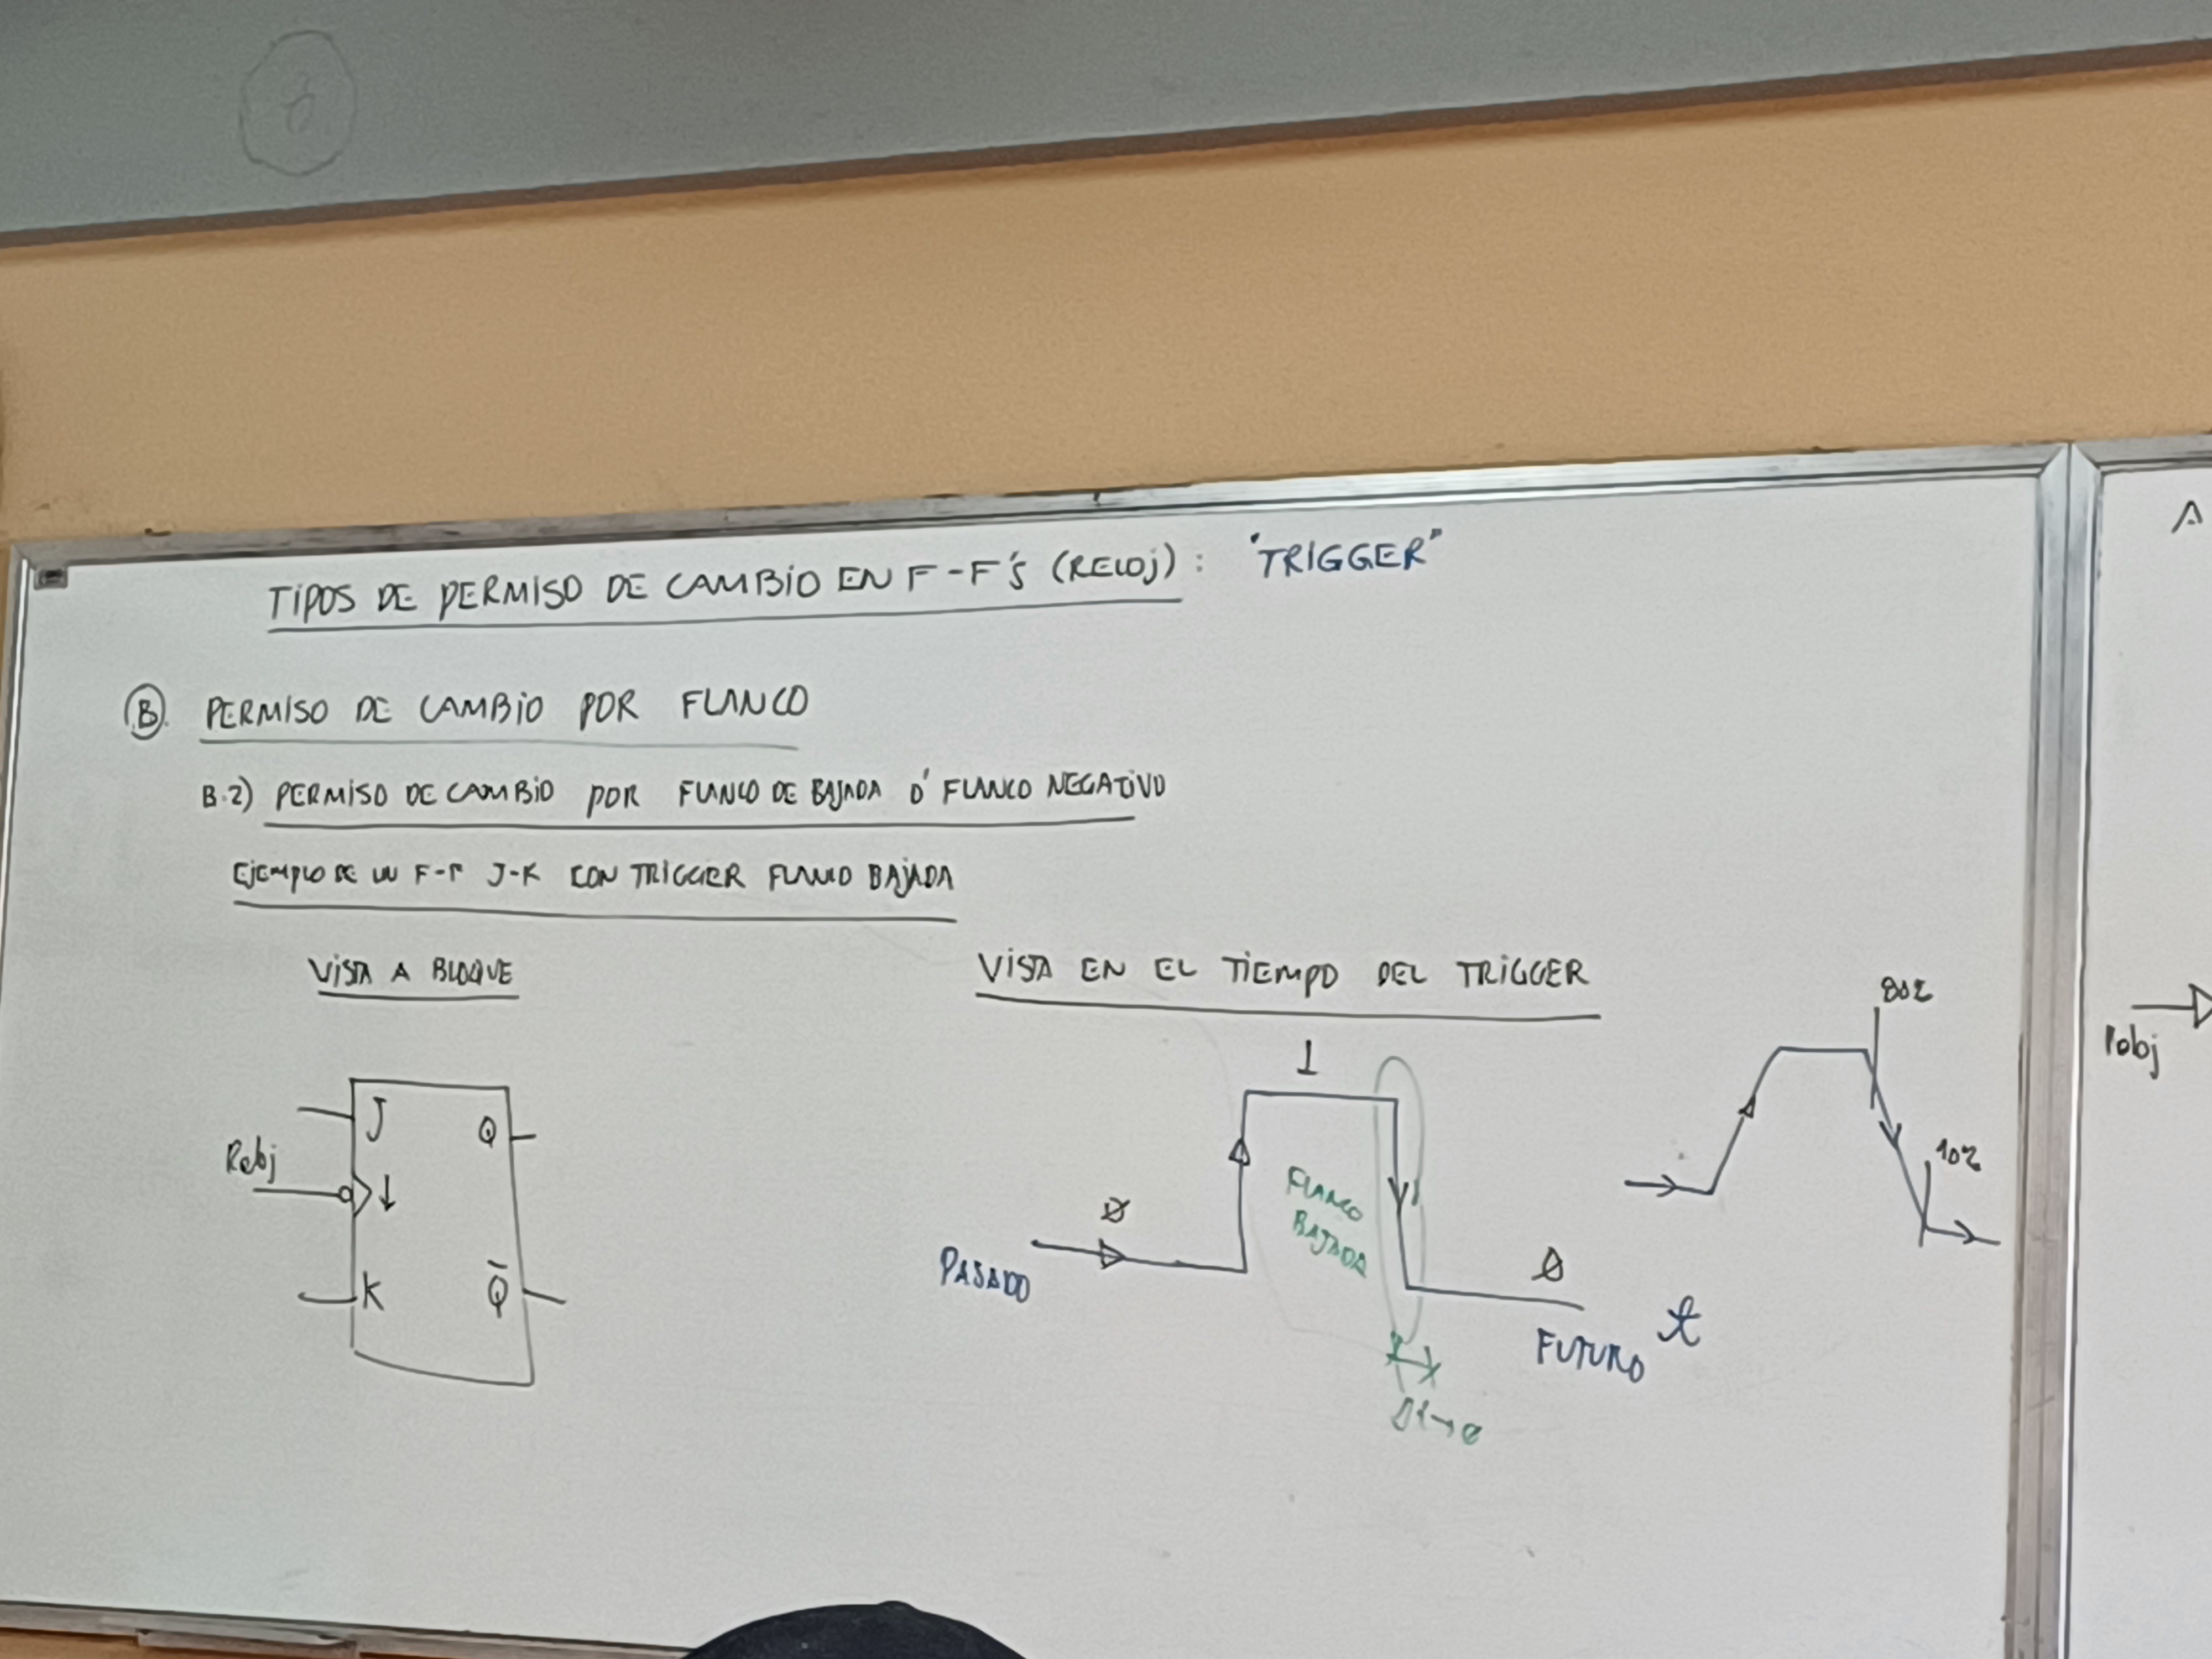 TIPOS DE PERMISO DE CAMBIO EN F-F'S (RELOJ): "TRIGGER"
B. PERMISO DE CAMBIO POR FLANCO
B.2) PERMISO DE CAMBIO POR FLANCO DE BAJADA Ó FLANCO NEGATIVO
EJEMPLO DE UN F-F J-K CON TRIGGER FLANCO BAJADA
VISTA A BLOQUE
VISTA EN EL TIEMPO DEL TRIGGER
J
Q
Reloj
↓
K
Q̅
PASADO
Ø
1
FLANCO
BAJADA
Ø
FUTURO
t
Δt→0
10%
A
Reloj